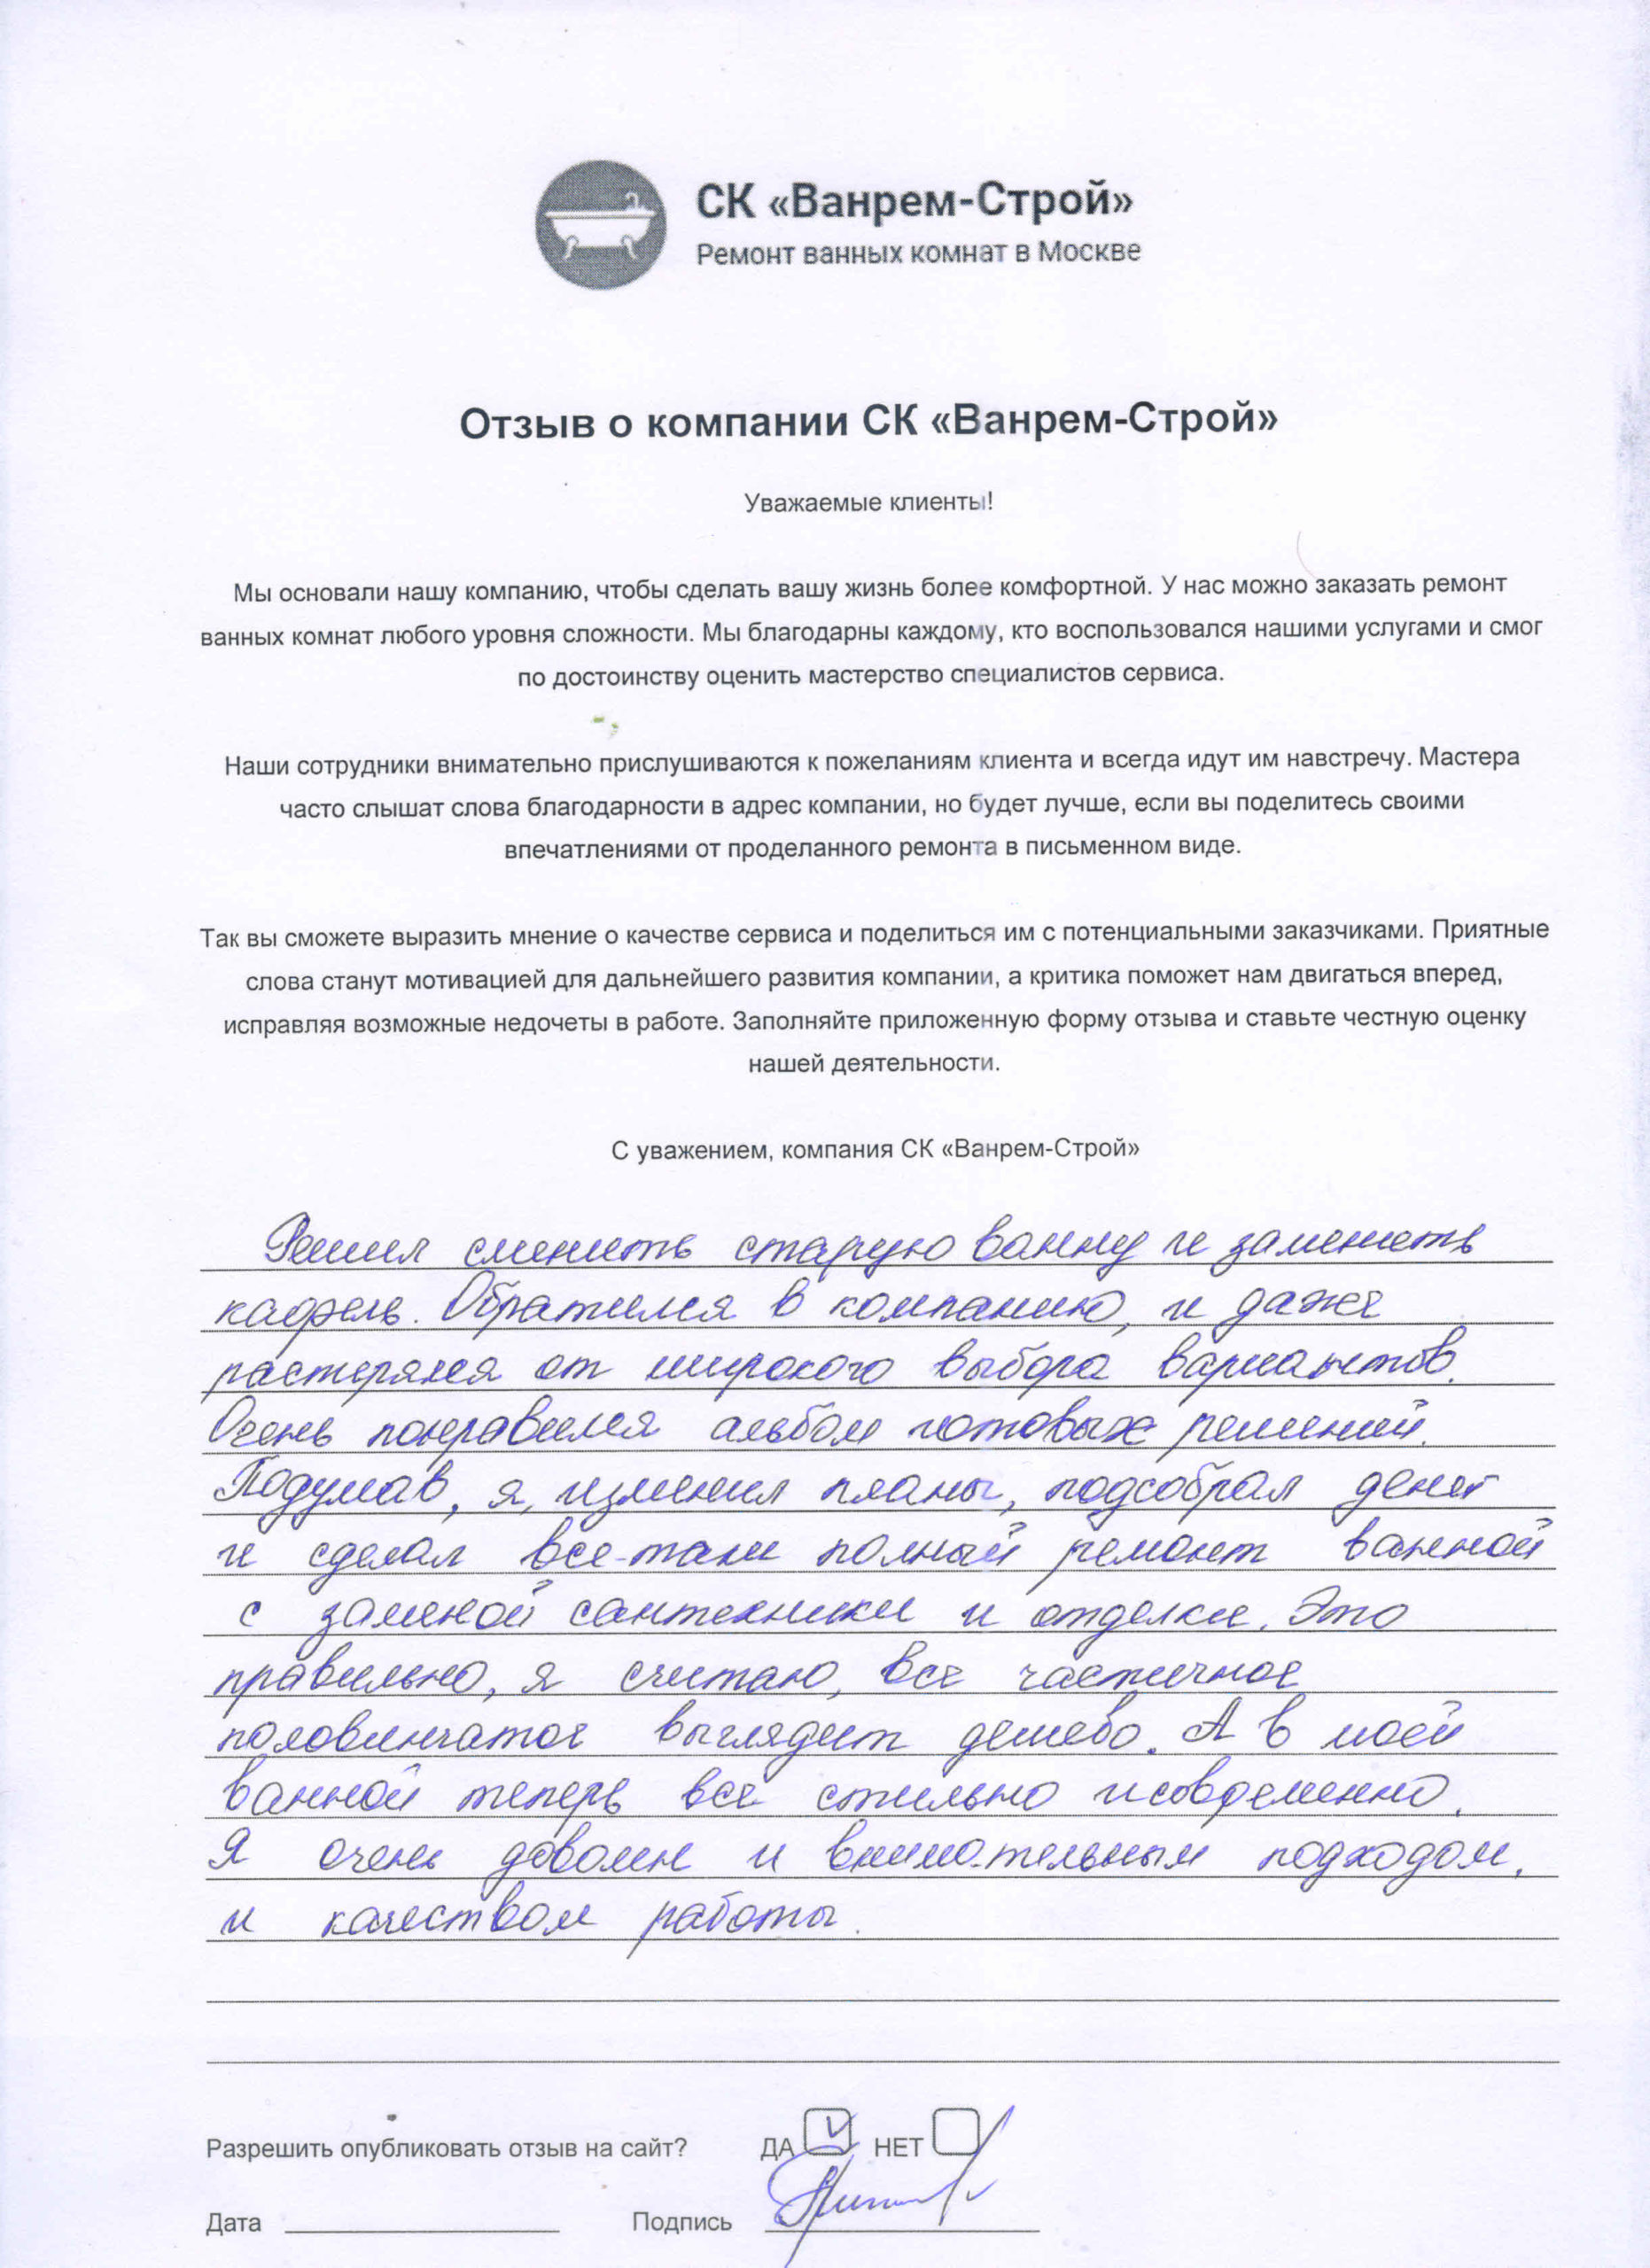 СК «Ванрем-Строй»
Ремонт ванных комнат в Москве
Отзыв о компании СК «Ванрем-Строй»
Уважаемые клиенты!
Мы основали нашу компанию, чтобы сделать вашу жизнь более комфортной. У нас можно заказать ремонт
ванных комнат любого уровня сложности. Мы благодарны каждому, кто воспользовался нашими услугами и смог
по достоинству оценить мастерство специалистов сервиса.
Наши сотрудники внимательно прислушиваются к пожеланиям клиента и всегда идут им навстречу. Мастера
часто слышат слова благодарности в адрес компании, но будет лучше, если вы поделитесь своими
впечатлениями от проделанного ремонта в письменном виде.
Так вы сможете выразить мнение о качестве сервиса и поделиться им с потенциальными заказчиками. Приятные
слова станут мотивацией для дальнейшего развития компании, а критика поможет нам двигаться вперед,
исправляя возможные недочеты в работе. Заполняйте приложенную форму отзыва и ставьте честную оценку
нашей деятельности.
С уважением, компания СК «Ванрем-Строй»
Решил сменить старую ванну и заменить
кафель. Обратился в компанию, и даже
растерялся от широкого выбора вариантов.
Очень понравился альбом готовых решений.
Подумав, я, изменил планы, подсобрал денег
и сделал все-таки полный ремонт ванной
с заменой сантехники и отделки. Это
правильно, я считаю, все частичное
половинчатое выглядит дешево. А в моей
ванной теперь все стильно и современно.
Я очень доволен и внимательным подходом,
и качеством работы.
Разрешить опубликовать отзыв на сайт? ДА НЕТ
Дата Подпись